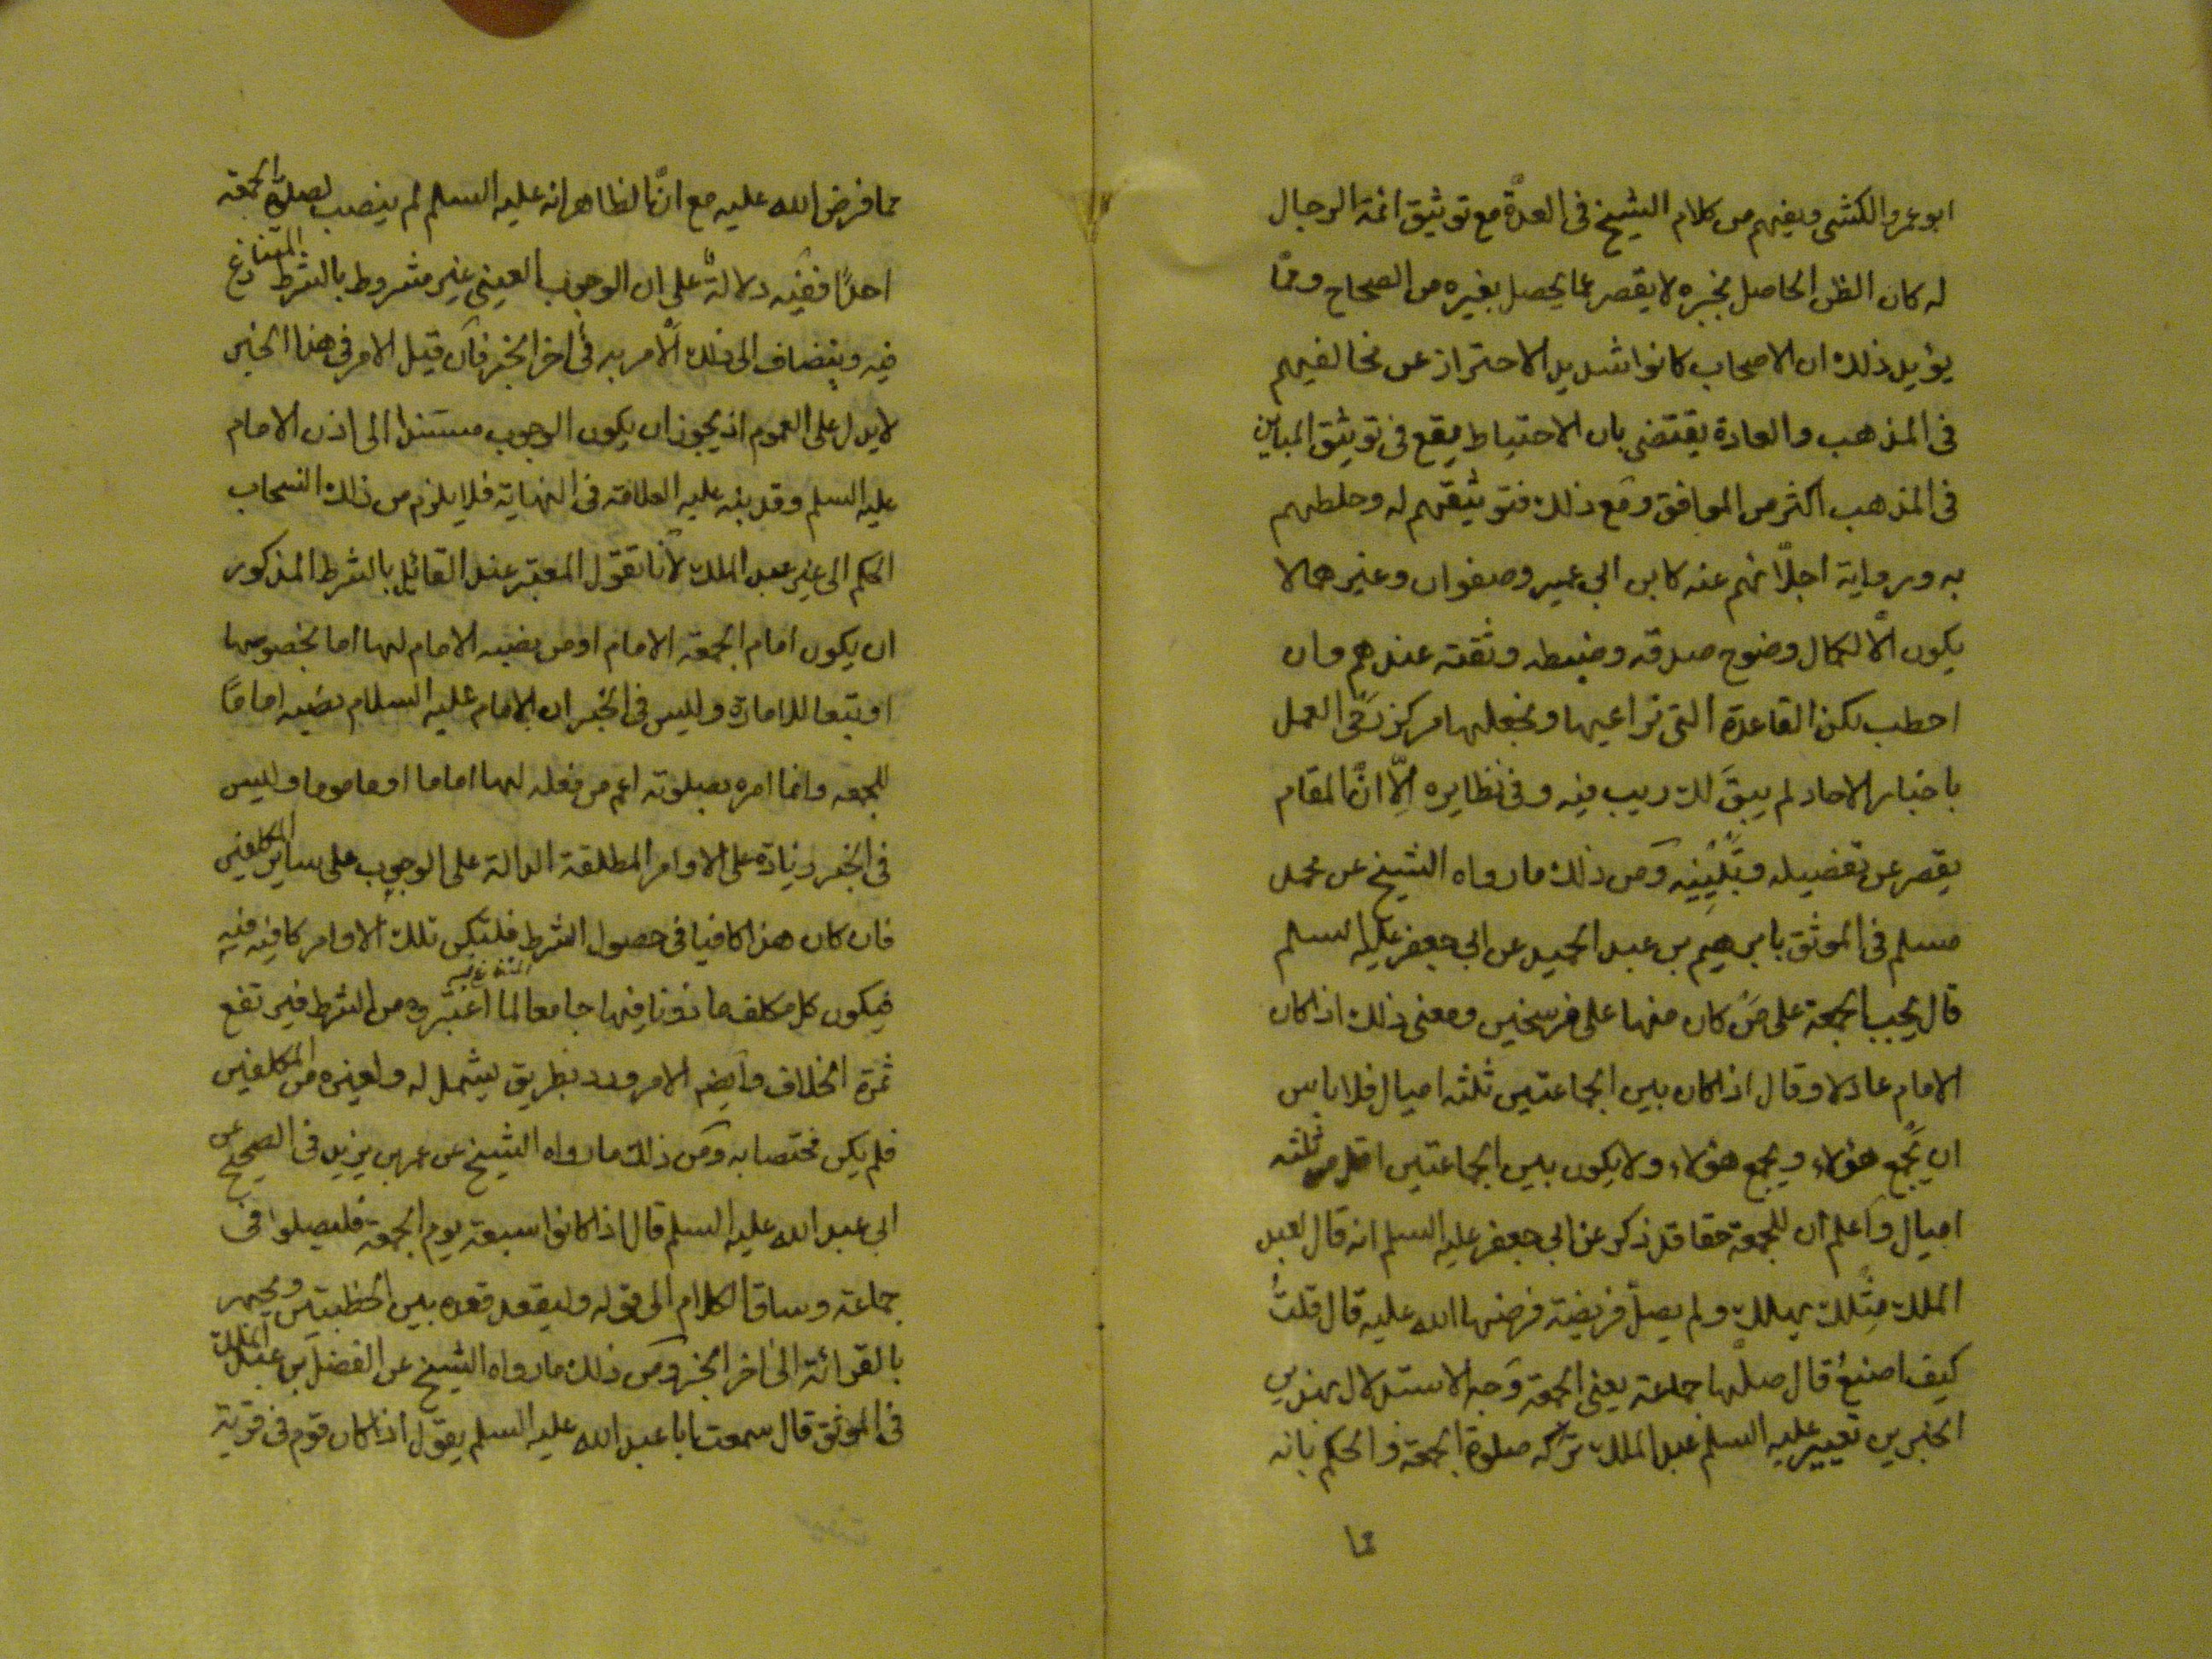 ابو عمرو الكشى ويفهم من كلام الشيخ فى العدّة مع توثيق ائمة الرجال
له كان الظن الحاصل بخبره لا يقصر عما يحصل بغيره من الصحاح وممّا
يؤيد ذلك ان الاصحاب كانوا شديد الاحتراز عن مخالفيهم
فى المذهب والعادة يقتضى بان الاحتياط يقع فى توثيق المباين
فى المذهب اكثر من الموافق ومع ذلك فتوثيقهم له وخلطهم
به ورواية اجلّائهم عنه كابن ابي عمير وصفوان وغيرهما لا
يكون الّا لكمال وضوح صدقه وضبطه وثقته عندهم وان
احطت بكن القاعدة التى نراعيها ونجعلها مركز رَحَى العمل
باخبار الاحاد لم يبقَ لك ريب فيه وفى نظايره الّا انّ المقام
يقصر عن تفصيله وتَبْيِينِه ومن ذلك ما رواه الشيخ عن محمد
مسلم فى الموثق بابرهيم بن عبد الحميد عن ابي جعفر عليه السلم
قال يجب الجمعة على مَن كان منها على فرسخين ومعنى ذلك اذا كان
الامام عادلا وقال اذا كان بين الجماعتين ثلثه اميال فلا باس
ان يُجمع هؤلاء ويجمع هؤلاء ولا يكون بين الجماعتين اقل من ثلثه
اميال واعلم ان للجمعة حقا قد ذكر عن ابي جعفر عليه السلم انه قال لعبد
الملك مِثلك يهلك ولم يصلّ فريضة فرضها الله عليه قال قلتُ
كيف اصنع قال صلّها جماعة يعنى الجمعة وجه الاستدلال بهذين
الخبرين تعيير عليه السلم عبد الملك بتركه صلوة الجمعة والحكم بانه
مما
مما فرض الله عليه مع انّ الظاهر انه عليه السلم لم ينصب لصلوة الجمعة
احدًا ففيه دلالةٌ على ان الوجوب العينى غير مشروط بالشرط المتنازع
فيه وينضاف الى ذلك الأمر به فى اخر الخبر فان قيل الامر فى هذا الخبر
لا يدل على العموم اذ يجوز ان يكون الوجوب مستندا الى اذن الامام
عليه السلم وقد نبه عليه العلامة فى النهاية فلا يلزم من ذلك انسحاب
الحكم الى غير عبد الملك لأنا نقول المعتبر عند القائل بالشرط المذكور
ان يكون امام الجمعة الامام او من نصبه الامام لها اما بخصوصها
او تبعا للامارة وليس فى الخبر ان الامام عليه السلام نصبه اماما
للجمعه وانما امره بصلوته اعم من فعله لها اماما او ماموما وليس
فى الخبر زيادة على الاوامر المطلقة الدالة على الوجوب على ساير المكلفين
فان كان هذا كافيا فى حصول الشرط فلتكن تلك الاوامر كافيه فيه
فيكون كل مكلف ماذونا فيها جامعا لما اعتبروه من الشرط فيرتفع
ثمرة الخلاف وايضه الامر ورد بطريق يشمل له ولغيره من المكلفين
فلم يكن مختصا به ومن ذلك ما رواه الشيخ عن عمر بن يزيد فى الصحيح عن
ابى عبد الله عليه السلم قال اذا كانوا سبعة يوم الجمعة فليصلوا فى
جماعة وساق الكلام الى قوله وليقعد قعدة بين الخطبتين ويجهر
بالقرائة الى اخر الخبر ومن ذلك ما رواه الشيخ عن الفضل بن عبد الملك
فى الموثق قال سمعت ابا عبد الله عليه السلم يقول اذا كان قوم فى قرية